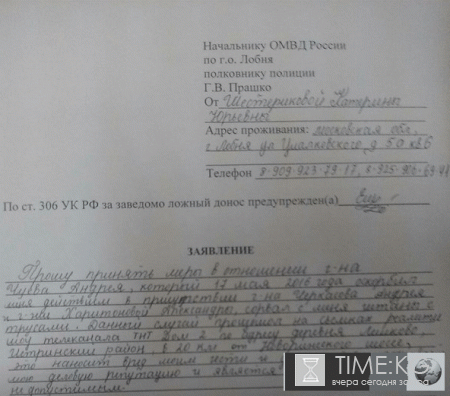 Начальнику ОМВД России
по г.о. Лобня
полковнику полиции
Г.В. Прашко
От Шестериковой Катерины
Юрьевны
Адрес проживания: московская обл.
г. Лобня ул д. 5а кв 6
Телефон 8-909-923-79-17, 8-925-906-69-
По ст. 306 УК РФ за заведомо ложный донос предупрежден(а)
ЗАЯВЛЕНИЕ
Прошу принять меры в отношении г-на
Чуева Андрея, который 17 мая 2016 года оскорбил
меня действием в присутствии г-на Черкасова Андрея
и г-жи Харитоновой Александры, сорвал с меня штаны с
трусами. Данный случай произошел на съемках реалити
шоу телеканала ТНТ Дом 2 по адресу деревня
Истринский район, 20 км от шоссе,
это наносит вред моей чести и
мою деловую репутацию и является
недопустимым.
TIME:K
вчера сегодня